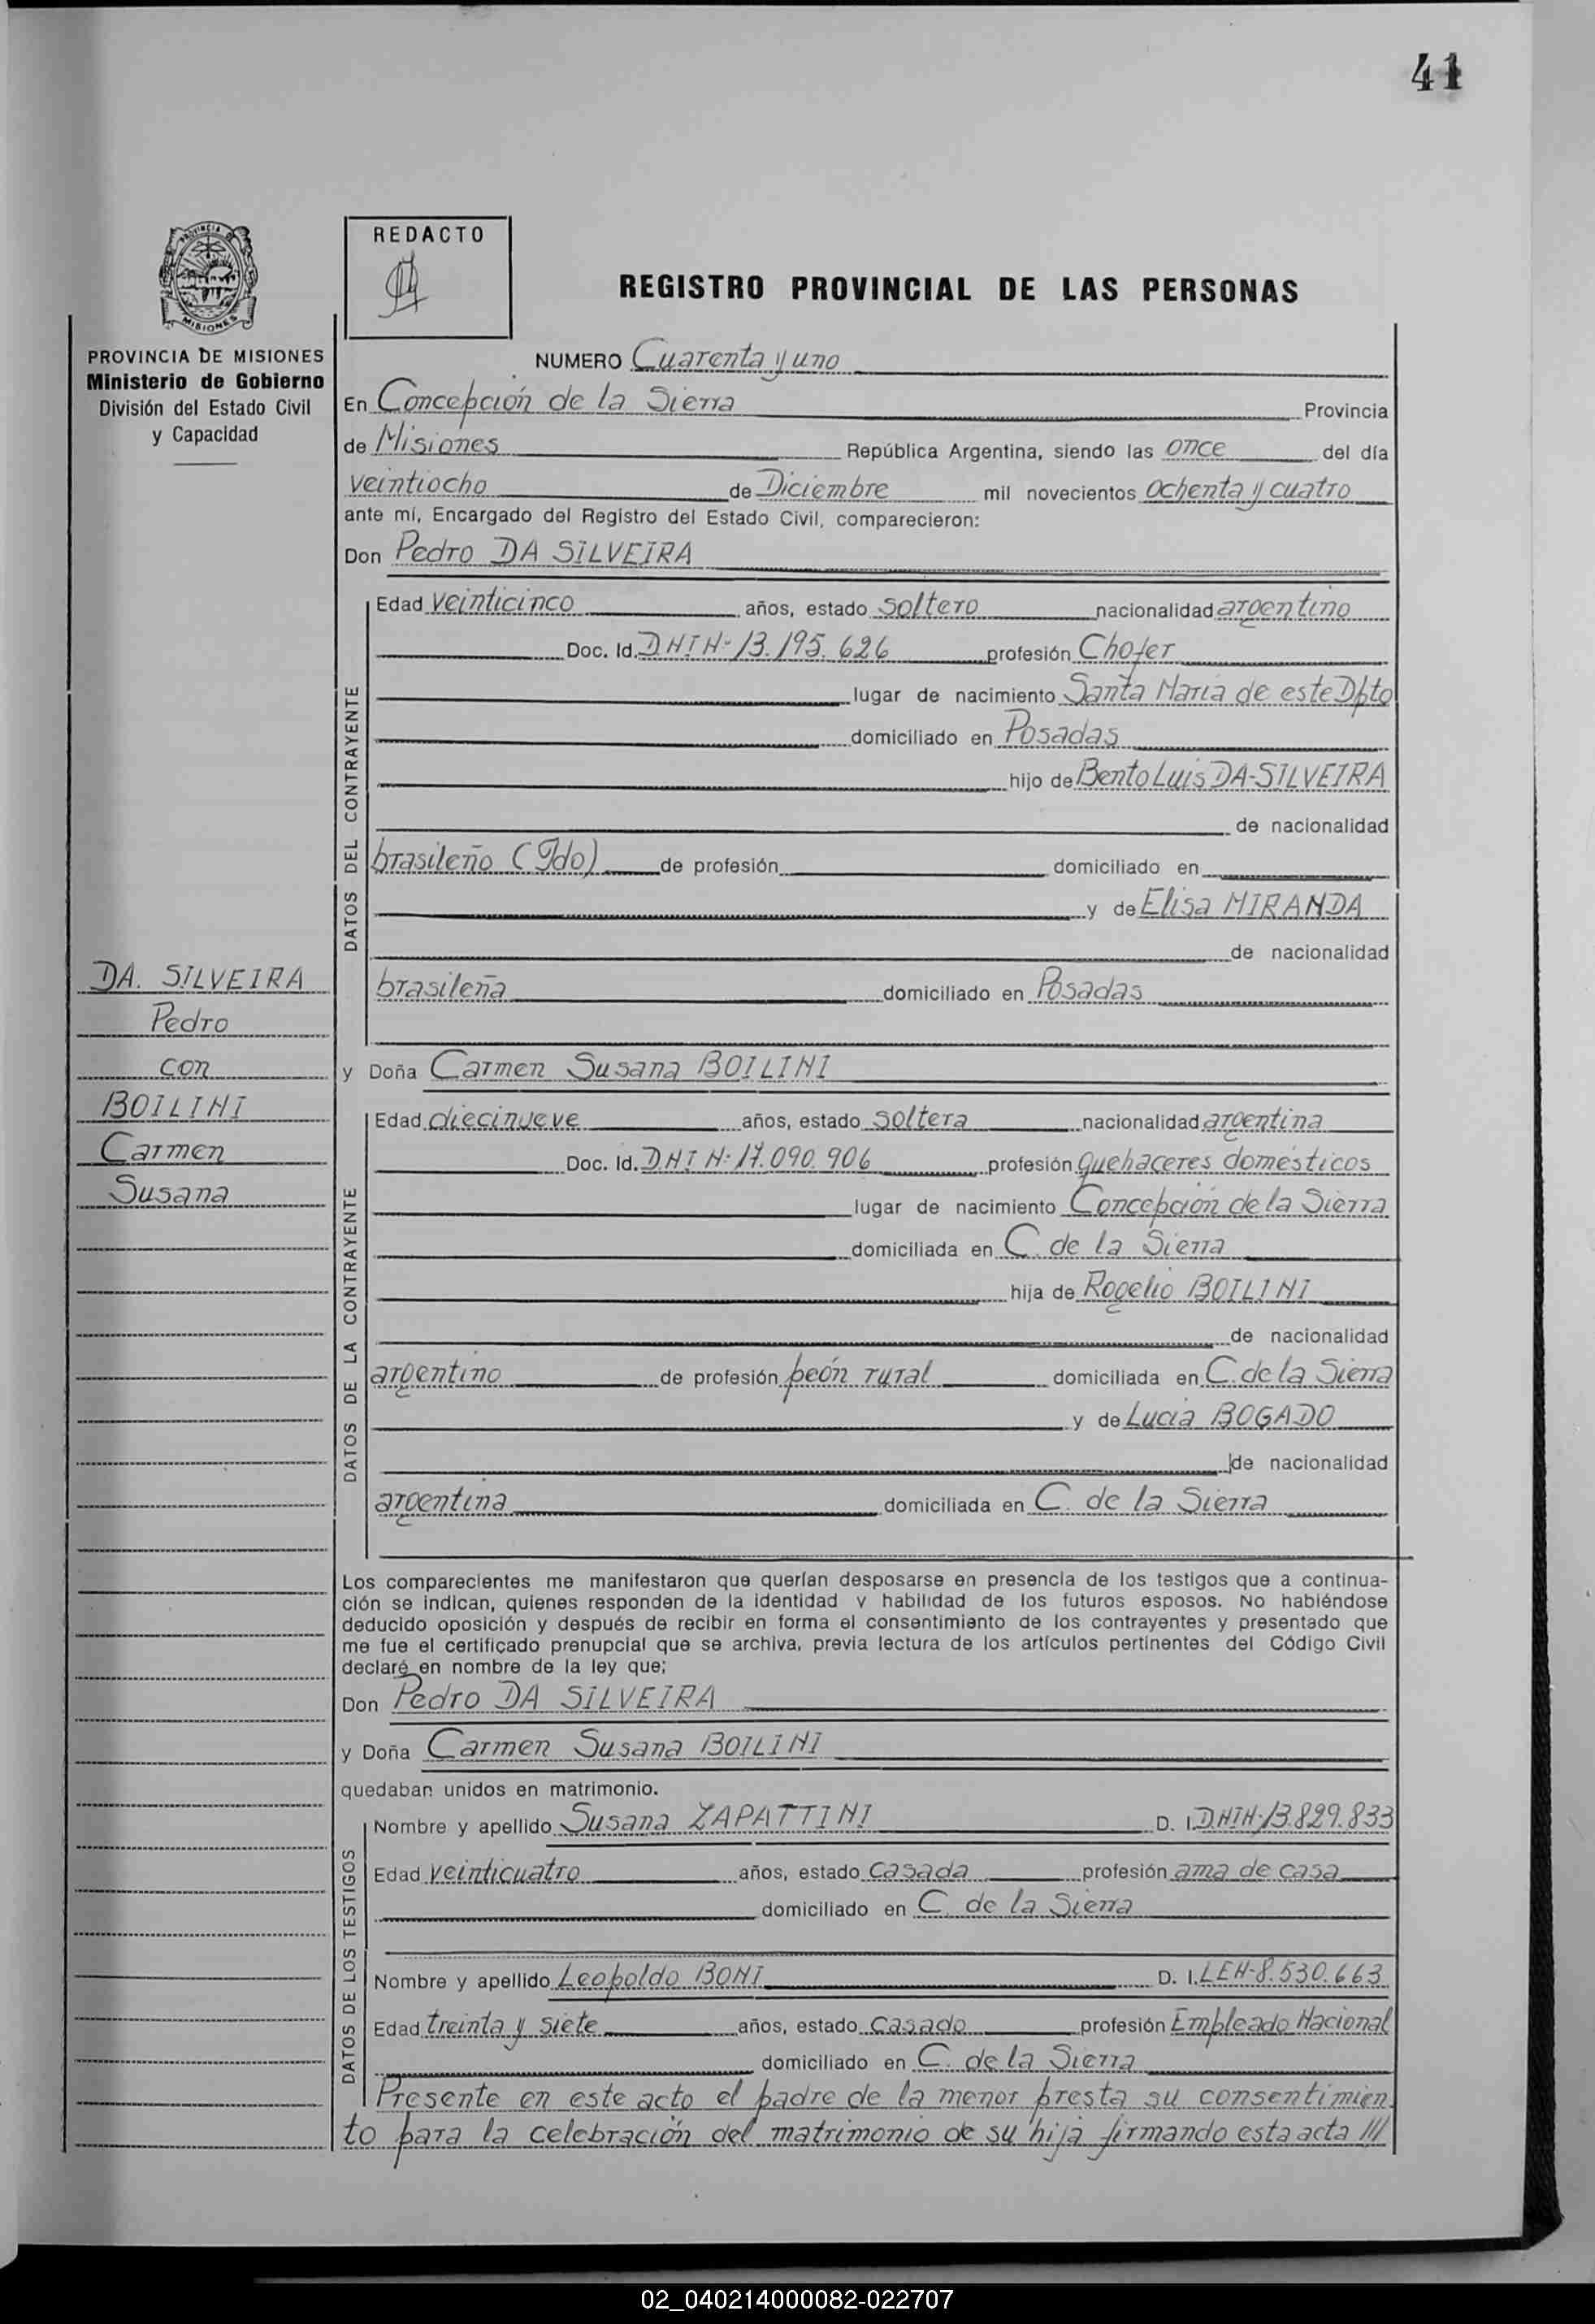 41
REDACTO
REGISTRO PROVINCIAL DE LAS PERSONAS
PROVINCIA DE MISIONES
Ministerio de Gobierno
División del Estado Civil
y Capacidad
NUMERO Cuarenta y uno
En Concepción de la Sierra Provincia
de Misiones República Argentina, siendo las once del día
veintiocho de Diciembre mil novecientos ochenta y cuatro
ante mí, Encargado del Registro del Estado Civil, comparecieron:
Don Pedro DA SILVEIRA
DATOS DEL CONTRAYENTE
Edad veinticinco años, estado soltero nacionalidad argentino
Doc. Id. DNI Nº 13.195.626 profesión Chofer
lugar de nacimiento Santa Maria de este Dpto
domiciliado en Posadas
hijo de Bento Luis DA-SILVEIRA
de nacionalidad
brasileño (Fdo) de profesión domiciliado en
y de Elisa MIRANDA
de nacionalidad
brasileña domiciliado en Posadas
DA. SILVEIRA
Pedro
con
BOILINI
Carmen
Susana
y Doña Carmen Susana BOILINI
DATOS DE LA CONTRAYENTE
Edad diecinueve años, estado soltera nacionalidad argentina
Doc. Id. DNI Nº 17.090.906 profesión quehaceres domésticos
lugar de nacimiento Concepción de la Sierra
domiciliada en C. de la Sierra
hija de Rogelio BOILINI
de nacionalidad
argentino de profesión peón rural domiciliada en C. de la Sierra
y de Lucia BOGADO
de nacionalidad
argentina domiciliada en C. de la Sierra
Los comparecientes me manifestaron que querían desposarse en presencia de los testigos que a continua-
ción se indican, quienes responden de la identidad y habilidad de los futuros esposos. No habiéndose
deducido oposición y después de recibir en forma el consentimiento de los contrayentes y presentado que
me fue el certificado prenupcial que se archiva, previa lectura de los artículos pertinentes del Código Civil
declaré en nombre de la ley que;
Don Pedro DA SILVEIRA
y Doña Carmen Susana BOILINI
quedaban unidos en matrimonio.
DATOS DE LOS TESTIGOS
Nombre y apellido Susana ZAPATTINI D. I. DNI Nº 13.829.833
Edad veinticuatro años, estado casada profesión ama de casa
domiciliado en C. de la Sierra
Nombre y apellido Leopoldo BONI D. I. LE Nº 8.530.663
Edad treinta y siete años, estado casado profesión Empleado Nacional
domiciliado en C. de la Sierra
Presente en este acto el padre de la menor presta su consentimien
to para la celebración del matrimonio de su hija firmando esta acta ///
02_040214000082-022707